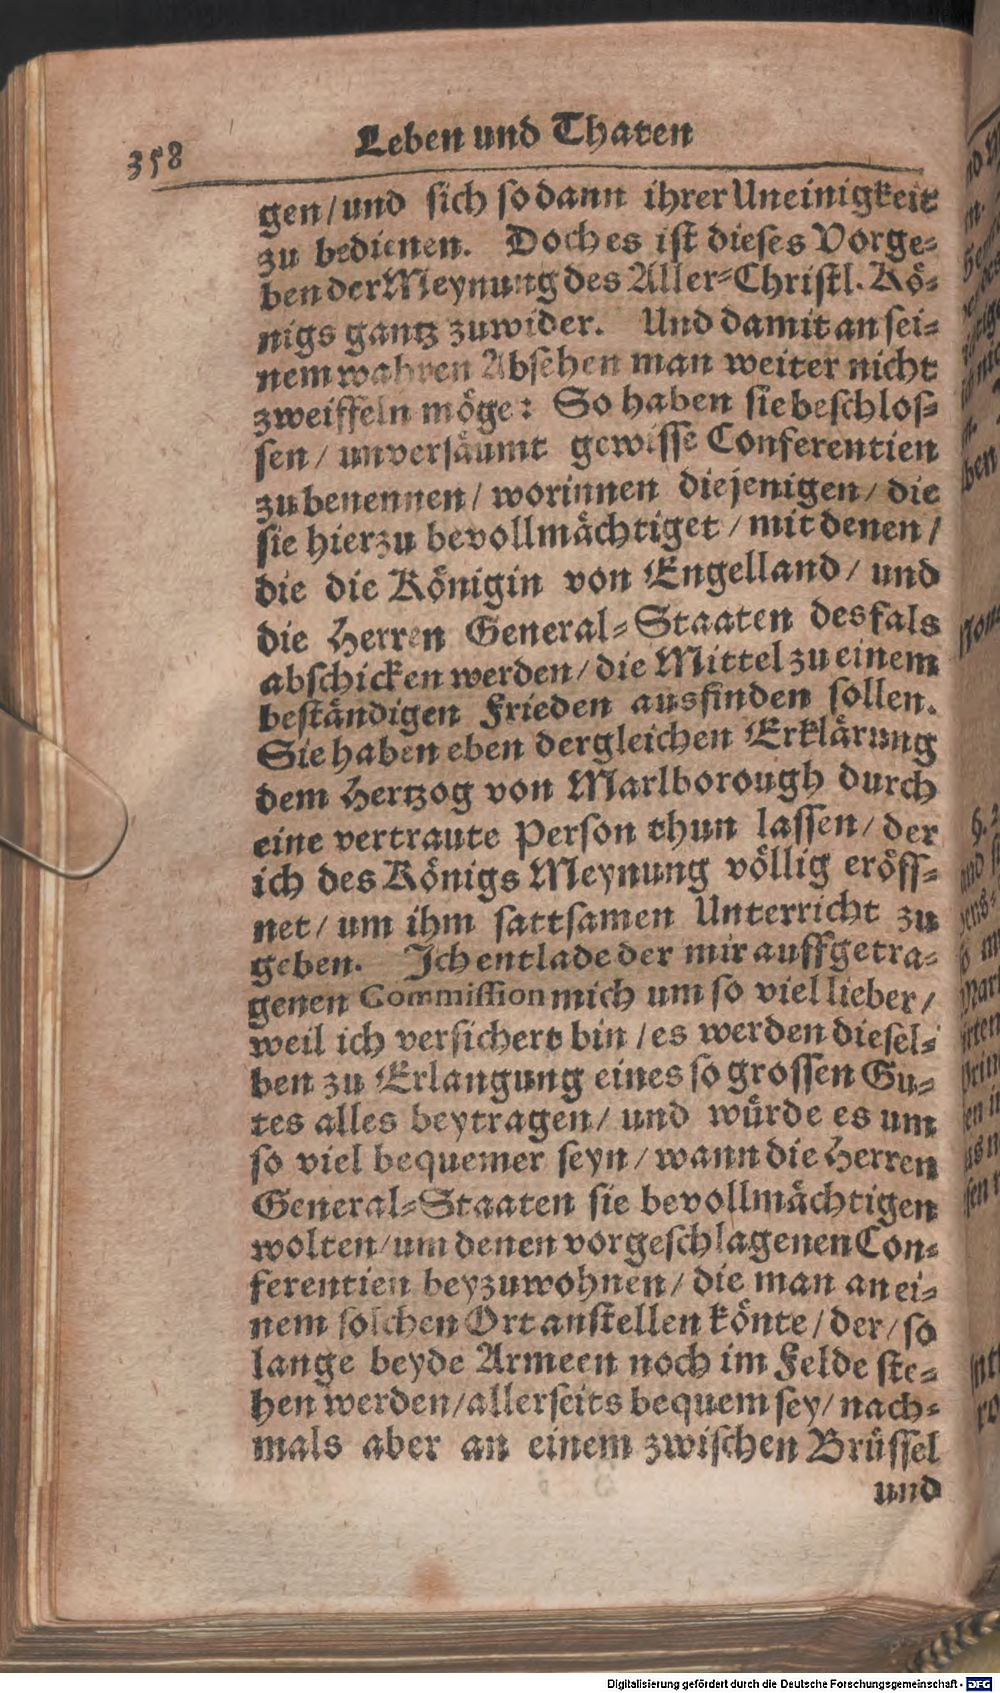 358 Leben und Thaten
gen/und sich so dann ihrer Uneinigkeit
zu bedienen. Doch es ist dieses Vorge-
ben der Meynung des Aller-Christl. Kö-
nigs gantz zuwider. Und damit an sei-
nem wahren Absehen man weiter nicht
zweiffeln möge: So haben sie beschlos-
sen/ unversäumt gewisse Conferentien
zu benennen/ worinnen diejenigen/ die
sie hierzu bevollmächtiget/ mit denen/
die die Königin von Engelland/ und
die Herren General-Staaten desfals
abschicken werden/ die Mittel zu einem
beständigen Frieden ausfinden sollen.
Sie haben eben dergleichen Erklärung
dem Hertzog von Marlborough durch
eine vertraute Person thun lassen/ der
ich des Königs Meynung völlig eröff-
net/ um ihm sattsamen Unterricht zu
geben. Ich entlade der mir auffgetra-
genen Commission mich um so viel lieber/
weil ich versichert bin/ es werden diesel-
ben zu Erlangung eines so grossen Gu-
tes alles beytragen/ und würde es um
so viel bequemer seyn/ wann die Herren
General-Staaten sie bevollmächtigen
wolten/ um denen vorgeschlagenen Con-
ferentien beyzuwohnen/ die man an ei-
nem solchen Ort anstellen könte/ der/ so
lange beyde Armeen noch im Felde ste-
hen werden/ allerseits bequem sey/ nach-
mals aber an einem zwischen Brüssel
und
Digitalisierung gefördert durch die Deutsche Forschungsgemeinschaft - DFG